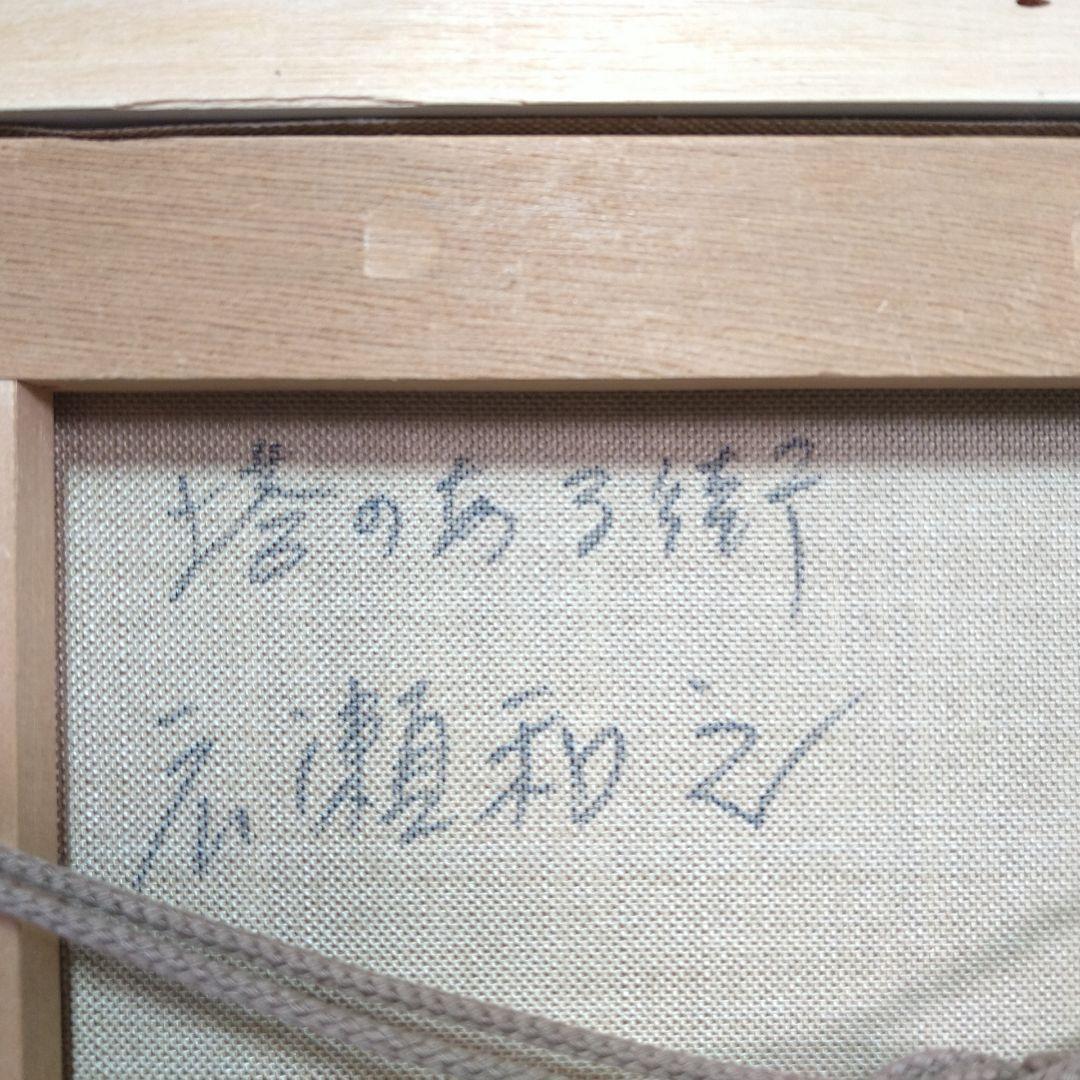 塔のある街
広瀬和之